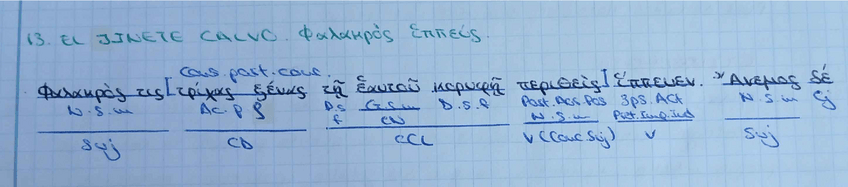 13. EL JINETE CALVO. Φαλακρὸς ἱππεύς.
Conc. part. conc.
Φαλακρὸς τις [τρίχας ξένας τῇ ἑαυτοῦ κορυφῇ περιθεὶς] ἵππευεν. Ἄνεμος δέ
N.S.m Ac.p f D.S f G.S.m D.S.f Part. Aos. 3ps. Act N.S.m Cj
CN N.S.m Pret. Imp. Ind
Suj CD CCL V (Conc Suj) V Suj